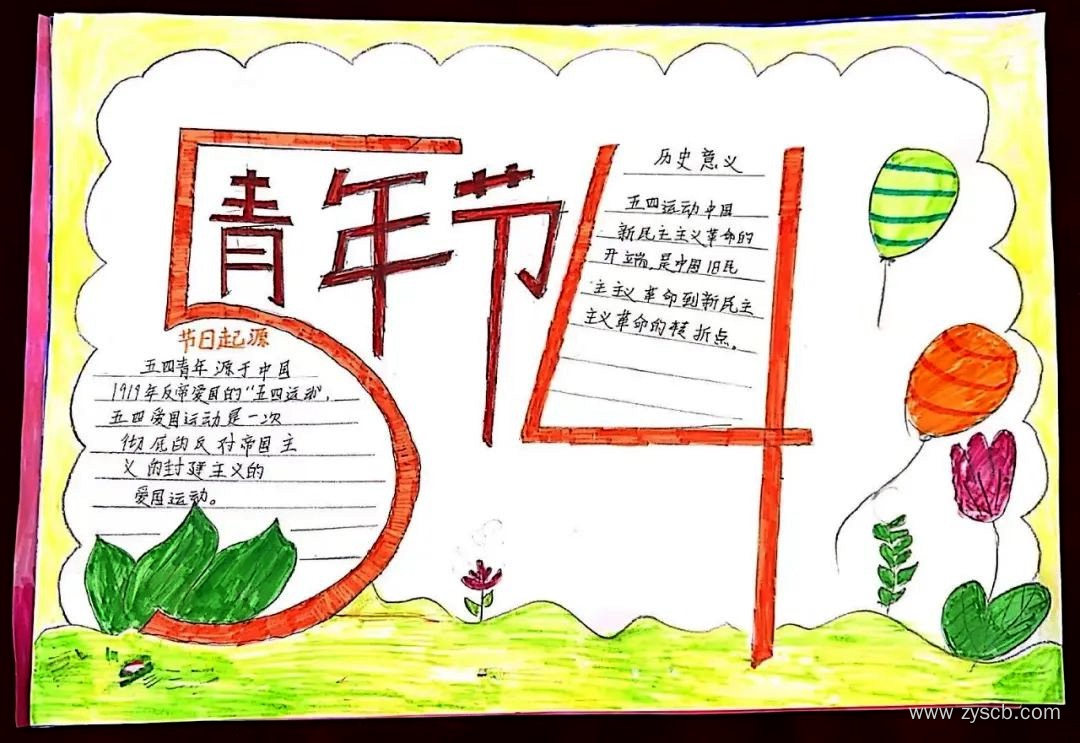 5 4
青年节
节日起源
五四青年源于中国
1919年反帝爱国的"五四运动",
五四爱国运动是一次
彻底的反对帝国主
义的封建主义的
爱国运动。
历史意义
五四运动中国
新民主主义革命的
开端,是中国旧民
主主义革命到新民主
主义革命的转折点。
www.zyscb.com